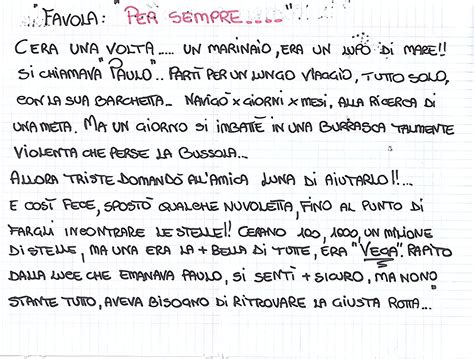 "FAVOLA: "PER SEMPRE....."
C'ERA UNA VOLTA..... UN MARINAIO, ERA UN LUPO DI MARE!!
SI CHIAMAVA "PAULO".. PARTÌ PER UN LUNGO VIAGGIO, TUTTO SOLO,
CON LA SUA BARCHETTA... NAVIGÒ X GIORNI X MESI, ALLA RICERCA DI
UNA META. MA UN GIORNO SI IMBATTÈ IN UNA BURRASCA TALMENTE
VIOLENTA CHE PERSE LA BUSSOLA...
ALLORA TRISTE DOMANDÒ ALL'AMICA LUNA DI AIUTARLO!!...
E COSÌ FECE, SPOSTÒ QUALCHE NUVOLETTA, FINO AL PUNTO DI
FARGLI INCONTRARE LE STELLE!! C'ERANO 100, 1000, UN MILIONE
DI STELLE, MA UNA ERA LA + BELLA DI TUTTE, ERA "VEGA". RAPITO
DALLA LUCE CHE EMANAVA PAULO, SI SENTÌ + SICURO, MA NONO
STANTE TUTTO, AVEVA BISOGNO DI RITROVARE LA GIUSTA ROTTA...